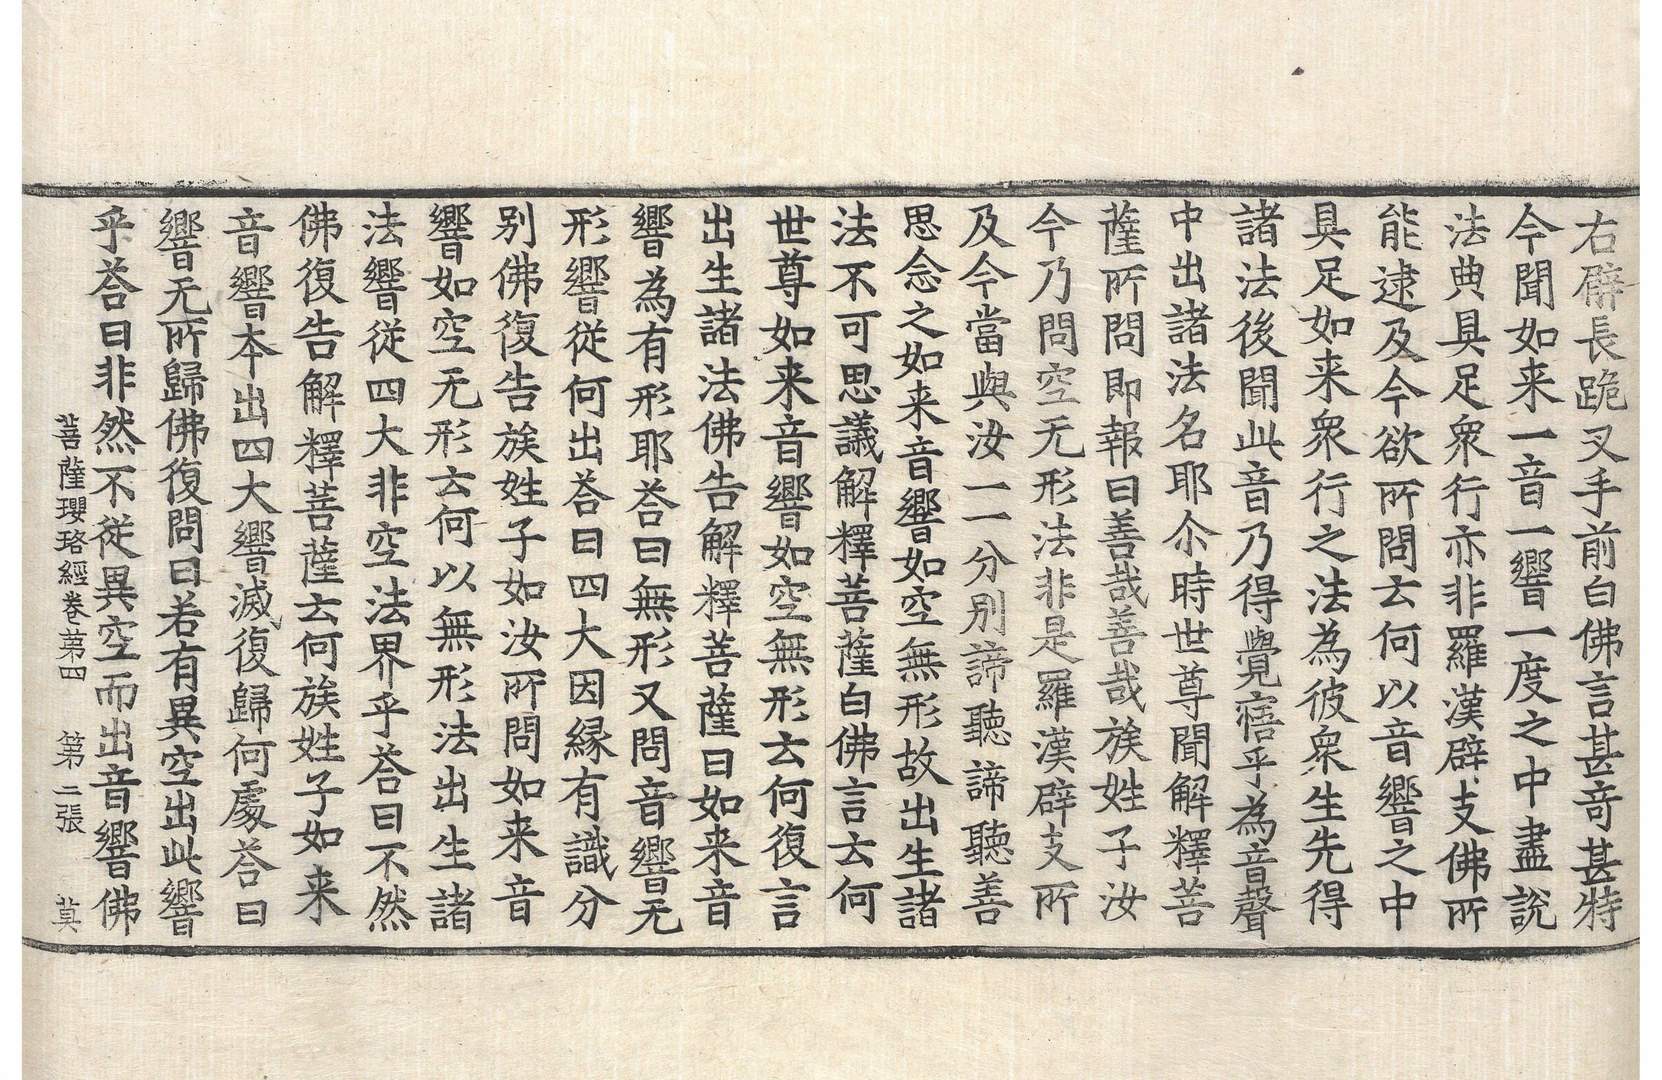 右臂長跪叉手前白佛言甚奇甚特
今聞如来一音一響一度之中盡說
法典具足衆行亦非羅漢辟支佛所
能逮及今欲所問云何以音響之中
具足如来衆行之法為彼衆生先得
諸法後聞此音乃得覺寤乎為音聲
中出諸法名耶尒時世尊聞解釋菩
薩所問即報曰善哉善哉族姓子汝
今乃問空无形法非是羅漢辟支所
及今當與汝一一分別諦聽諦聽善
思念之如来音響如空無形故出生諸
法不可思議解釋菩薩白佛言云何
世尊如来音響如空無形云何復言
出生諸法佛告解釋菩薩曰如来音
響為有形耶荅曰無形又問音響无
形響從何出荅曰四大因縁有識分
别佛復告族姓子如汝所問如来音
響如空无形云何以無形法出生諸
法響從四大非空法界乎荅曰不然
佛復告解釋菩薩云何族姓子如来
音響本出四大響滅復歸何處荅曰
響无所歸佛復問曰若有異空出此響
乎荅曰非然不從異空而出音響佛
菩薩瓔珞經卷苐四　第二張　莫